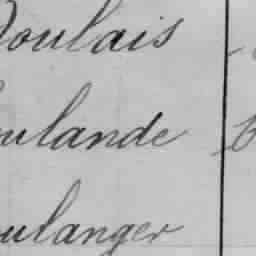 oulais
oulande
oulanger